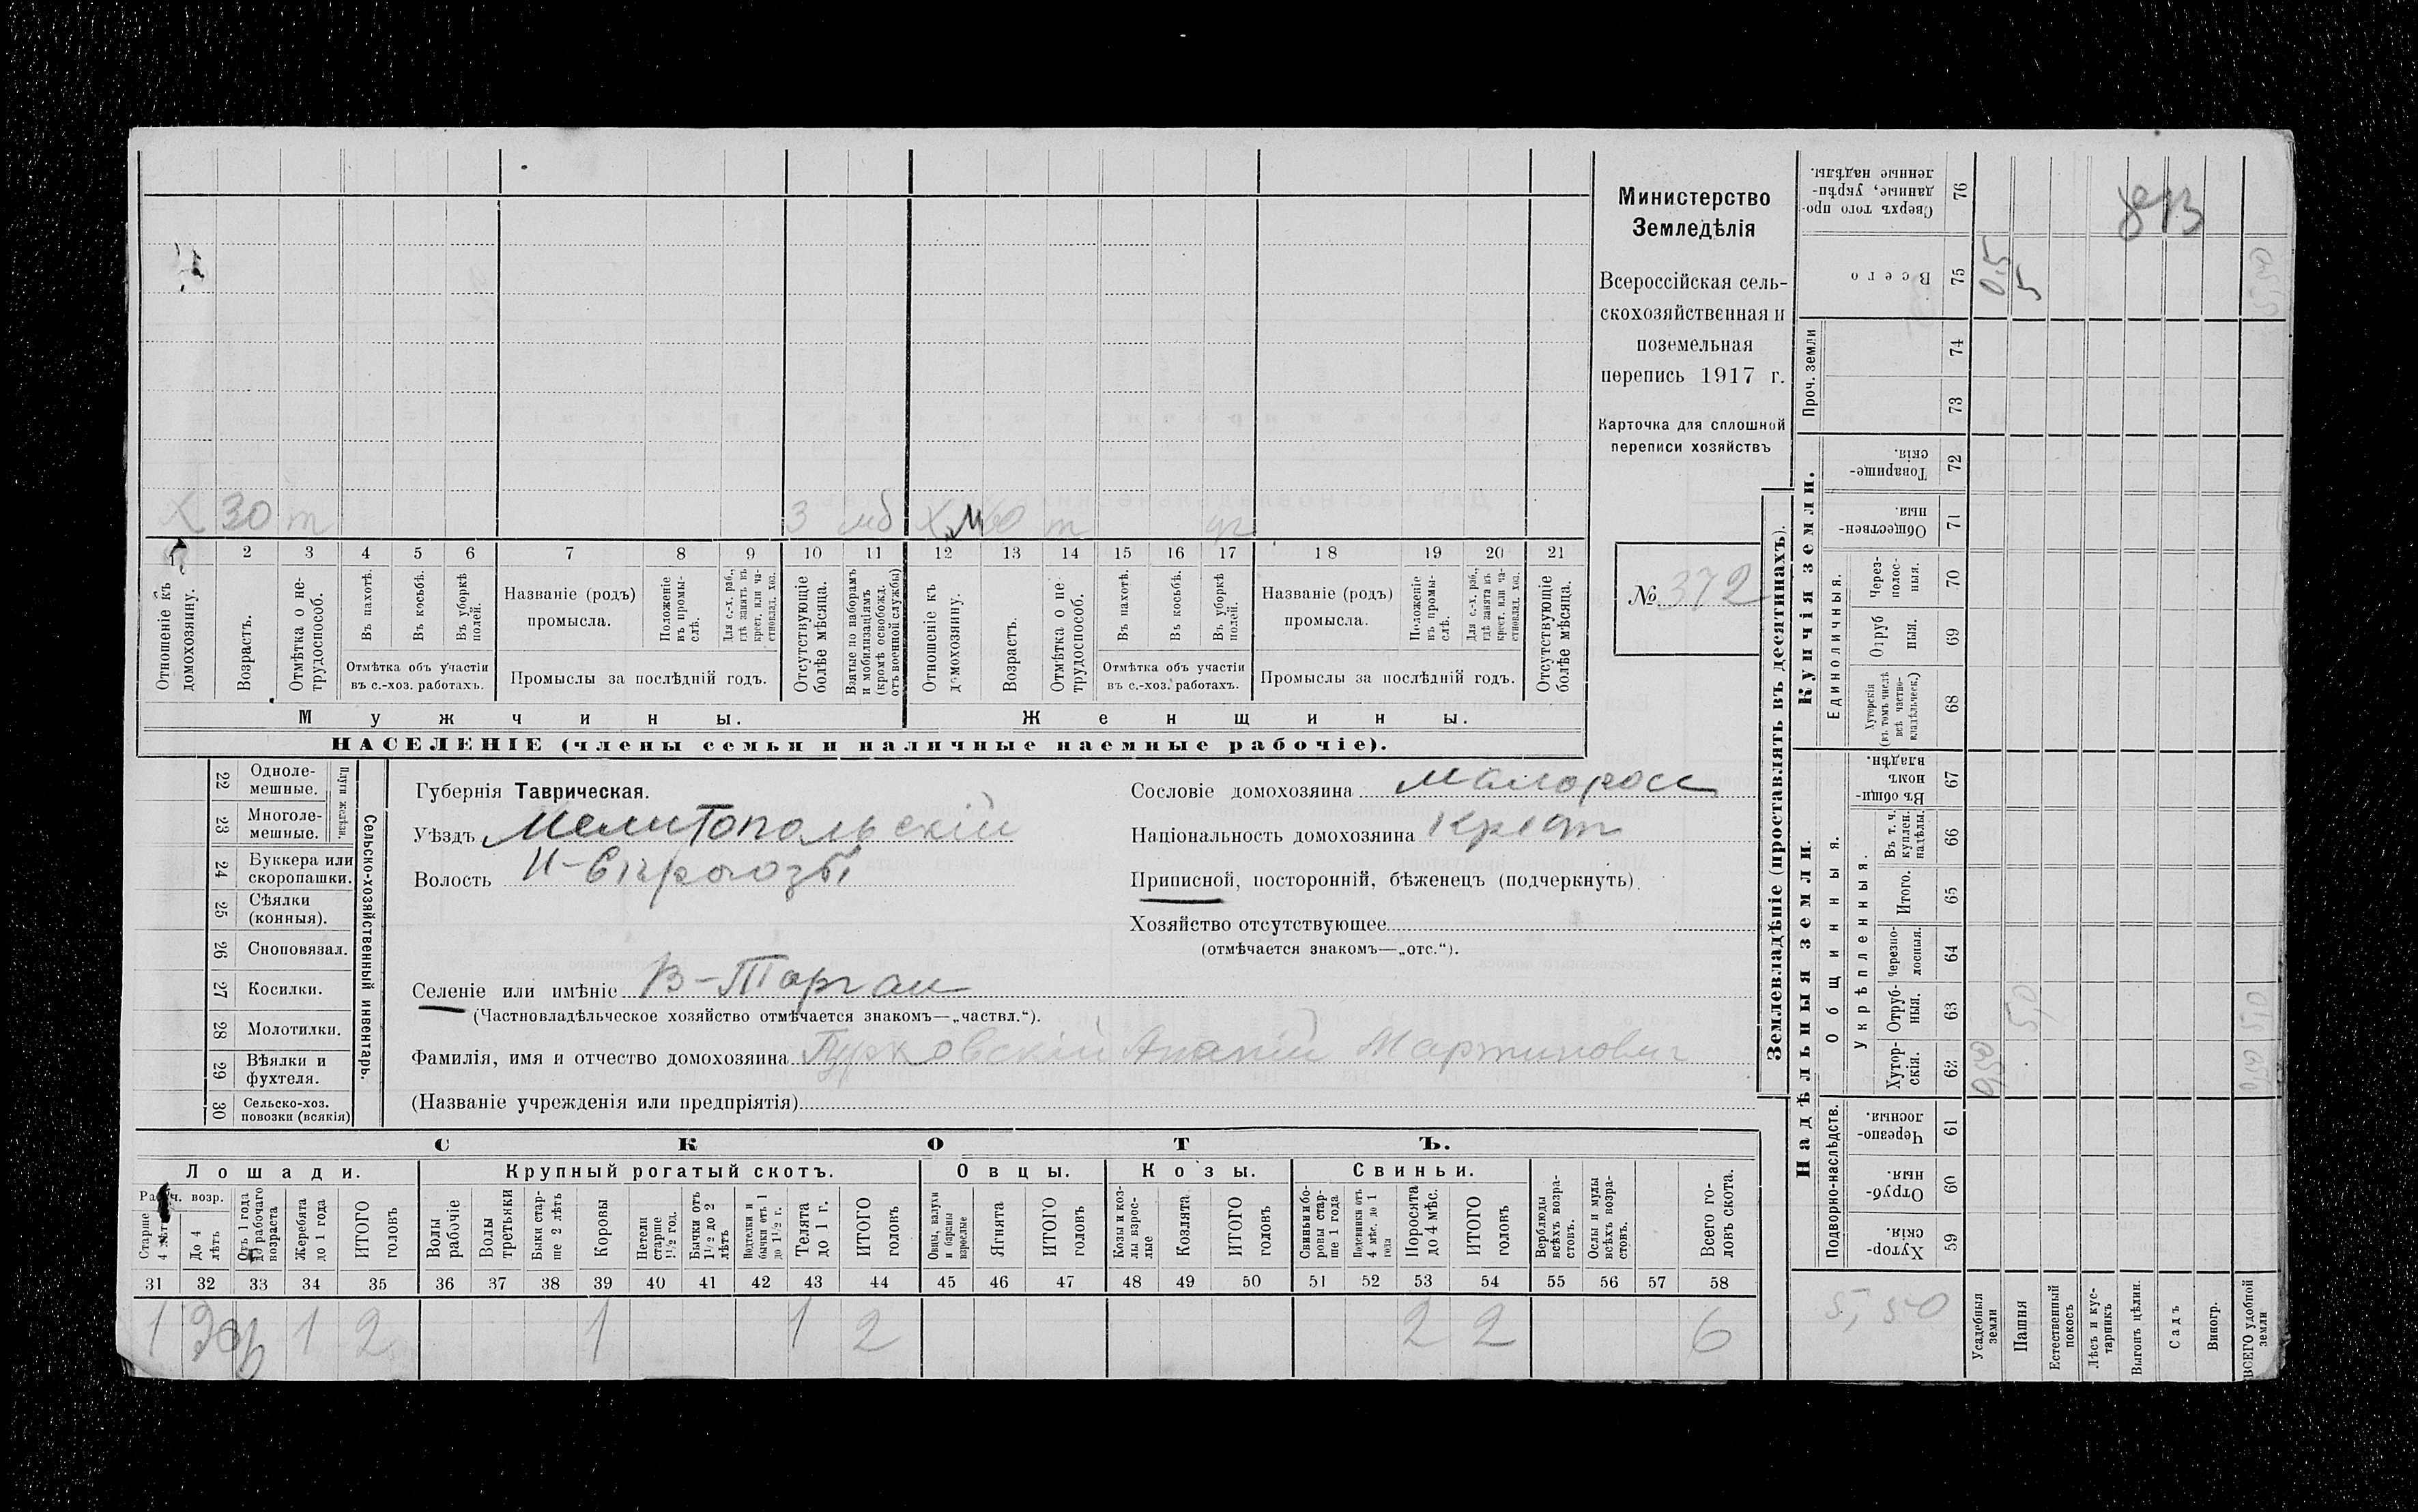 Министерство
Земледѣлія
Всероссійская сель-
скохозяйственная и
поземельная
перепись 1917 г.
Карточка для сплошной
переписи хозяйствъ
№ 372
Х 30 т 3 мб Х М60 т
1 2 3 4 5 6 7 8 9 10 11 12 13 14 15 16 17 18 19 20 21
Отношеніе къ домохозяину.
Возрастъ.
Отмѣтка о не-трудоспособ.
Въ пахотѣ.
Въ косьбѣ.
Въ уборкѣ полей.
Отмѣтка объ участіи въ с.-хоз. работахъ.
Названіе (родъ) промысла.
Положеніе въ промы-слѣ.
Для с.-х. раб., гдѣ занятъ въ крест. или ча-стновлад. хоз.
Промыслы за послѣдній годъ.
Отсутствующіе болѣе мѣсяца.
Взятые по наборамъ и мобилизаціямъ (кромѣ освобожд. отъ военной службы)
Отношеніе къ домохозяину.
Возрастъ.
Отмѣтка о не трудоспособ.
Въ пахотѣ.
Въ косьбѣ.
Въ уборкѣ полей.
Отмѣтка объ участіи въ с.-хоз. работахъ.
Названіе (родъ) промысла.
Положеніе въ промы-слѣ.
Для с.-х. раб., гдѣ занята въ крест. или ча-стновлад. хоз.
Промыслы за послѣдній годъ.
Отсутствующіе болѣе мѣсяца.
Мужчины.
Женщины.
НАСЕЛЕНІЕ (члены семьи и наличные наемные рабочіе).
22 Одноле-мешные.
23 Многоле-мешные.
Плуги желѣзн.
24 Буккера или скоропашки.
25 Сѣялки (конныя).
26 Сноповязал.
27 Косилки.
28 Молотилки.
29 Вѣялки и фухтеля.
30 Сельско-хоз. повозки (всякія)
Сельско-хозяйственный инвентарь.
Губернія Таврическая.
Уѣздъ Мелитопольскій
Волость Н-Сѣрогозы
Селеніе или имѣніе В-Торгаи
(Частновладѣльческое хозяйство отмѣчается знакомъ—„частвл.“).
Фамилія, имя и отчество домохозяина Ананій Мартинович
(Названіе учрежденія или предпріятія)
Сословіе домохозяина малоросс
Національность домохозяина Крест
Приписной, посторонній, бѣженецъ (подчеркнуть).
Хозяйство отсутствующее
(отмѣчается знакомъ—„отс.“).
СКОТЪ.
Лошади.
Крупный рогатый скотъ.
Овцы.
Козы.
Свиньи.
Рабоч. возр.
Старше 4 лѣтъ
До 4 лѣтъ
Отъ 1 года до рабочаго возраста
Жеребята до 1 года
ИТОГО головъ
Волы рабочіе
Волы третьяки
Быки стар-ше 2 лѣтъ
Коровы
Нетели старше 1½ год.
Бычки отъ 1½ до 2 лѣтъ
Подтелки и бычки отъ 1 до 1½ г.
Телята до 1 г.
ИТОГО головъ
Овцы, валухи и бараны взрослые
Ягнята
ИТОГО головъ
Козы и коз-лы взрос-лые
Козлята
ИТОГО головъ
Свиньи и бо-ровы стар-ше 1 года
Подсвинки отъ 4 мѣс. до 1 года
Поросята до 4 мѣс.
ИТОГО головъ
Верблюды всѣхъ возра-стовъ.
Ослы и мулы всѣхъ возра-стовъ.
Всего го-ловъ скота.
31 32 33 34 35 36 37 38 39 40 41 42 43 44 45 46 47 48 49 50 51 52 53 54 55 56 57 58
1 1 2 1 1 2 2 2 6
Землевладѣніе (проставлять въ десятинахъ).
Надѣльныя земли.
Купчія земли.
Проч. земли
Сверхъ того про-данные, укрѣп-ленные надѣлы. 76
Всего 75 0,5 5 5,50
74
73
Товарище-скія. 72
Обществен-ныя. 71
Единоличныя.
Через-полос-ныя. 70
Отруб ныя. 69
Хуторскія (въ томъ числѣ всѣ частно-владѣльческ.) 68
Общинныя.
Въ общин-номъ владѣн. 67
Укрѣпленныя.
Въ т. ч. куплен. надѣлы. 66
Итого. 65
Черезпо-лосныя. 64
Отруб-ныя. 63 5,0 5,0
Хутор-скія. 62 0,50 0,50
Подворно-наслѣдств.
Черезпо-лосныя. 61
Отруб-ныя. 60
Хутор-скія. 59
5,50
Усадебныя земли
Пашня
Естественный покосъ
Лѣсъ и кус-тарникъ
Выгонъ цѣлин.
Садъ
Виногр.
ВСЕГО удобной земли